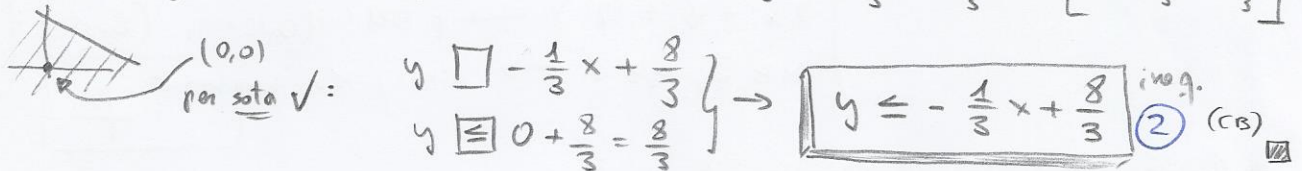 (0,0)
per sota ✓:
y □ - 1/3 x + 8/3
y ≤ 0 + 8/3 = 8/3
→ y ≤ - 1/3 x + 8/3
ineq.
2 (CB)